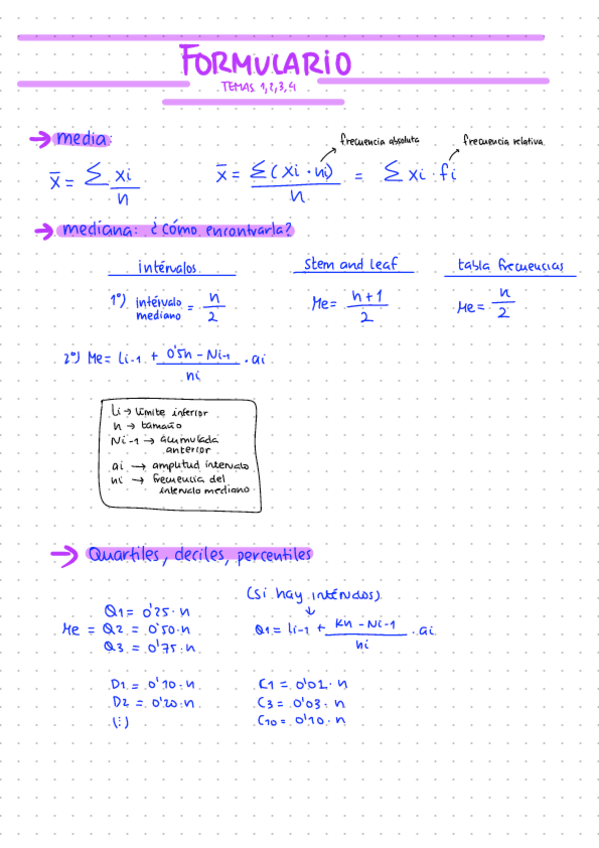 FORMULARIO
TEMAS 1,2,3,4
→ media:
frecuencia absoluta
frecuencia relativa
x̄ = Σ xi / n
x̄ = Σ(xi · ni) / n = Σ xi · fi
→ mediana: ¿cómo encontrarla?
intérvalos
stem and leaf
tabla frecuencias
1º) intérvalo mediano = n / 2
Me = n+1 / 2
Me = n / 2
2º) Me = Li-1 + 0'5n - Ni-1 / ni · ai
Li → límite inferior
n → tamaño
Ni-1 → acumulada
anterior
ai → amplitud intervalo
ni → frecuencia del
intervalo mediano
→ Quartiles, deciles, percentiles
(si hay intérvalos)
Q1 = 0'25 · n
Me = Q2 = 0'50 · n
Q3 = 0'75 · n
Q1 = li-1 + Kn - Ni-1 / ni · ai
D1 = 0'10 · n
D2 = 0'20 · n
(⋮)
C1 = 0'01 · n
C3 = 0'03 · n
C10 = 0'10 · n